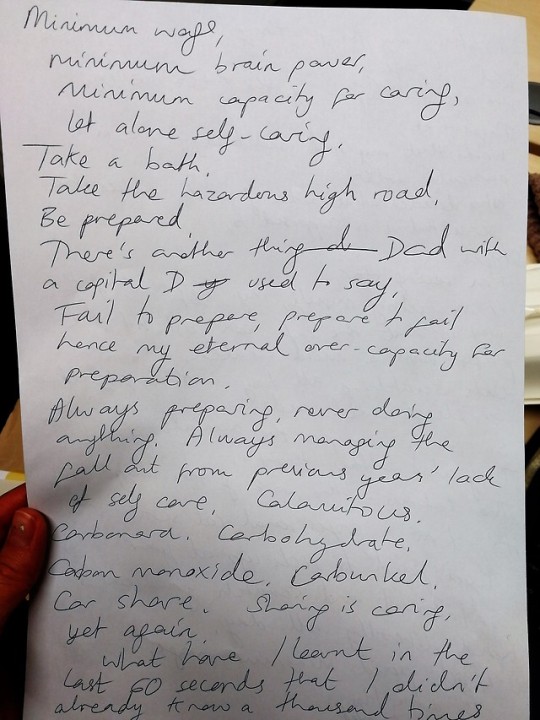 Minimum wage,
minimum brain power,
minimum capacity for caring,
let alone self-caring.
Take a bath.
Take the hazardous high road.
Be prepared.
There's another thing d Dad with
a capital D y used to say,
Fail to prepare, prepare to fail
hence my eternal over-capacity for
preparation.
Always preparing, never doing
anything. Always managing the
fall out from previous years' lack
of self care. Calamitous.
Carbonara. Carbohydrate.
Carbon monoxide. Carbunkel.
Car share. Sharing is caring,
yet again.
What have I learnt in the
last 60 seconds that I didn't
already know a thousand times